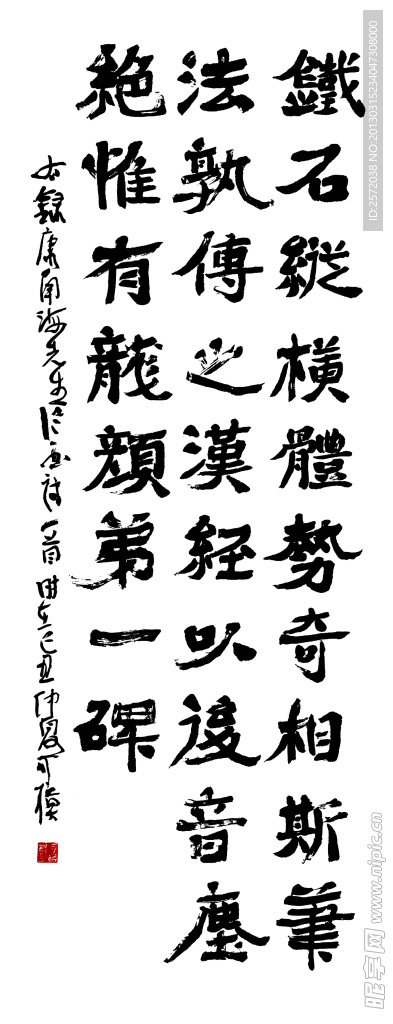 鐵石縱橫體勢奇相斯筆
法孰傳之漢經以後音塵
絶惟有龍顏弟一碑
右録康南海先生论书诗一首时在己丑仲夏可模
ID:2572038 NO:20130315234047308000
昵享网 www.nipic.cn